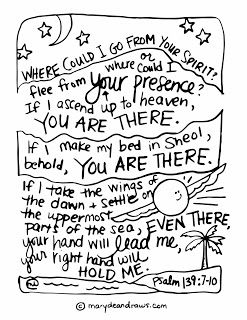 WHERE COULD I GO FROM YOUR SPIRIT?
or
where could I
flee from your presence?
If I ascend up to heaven,
YOU ARE THERE.
If I make my bed in Sheol,
behold, YOU ARE THERE.
If I take the wings of
the dawn + settle on
the uppermost
parts of the sea, EVEN THERE,
your hand will lead me,
your right hand will
HOLD ME.
Psalm 139:7-10
© marydeandraws.com